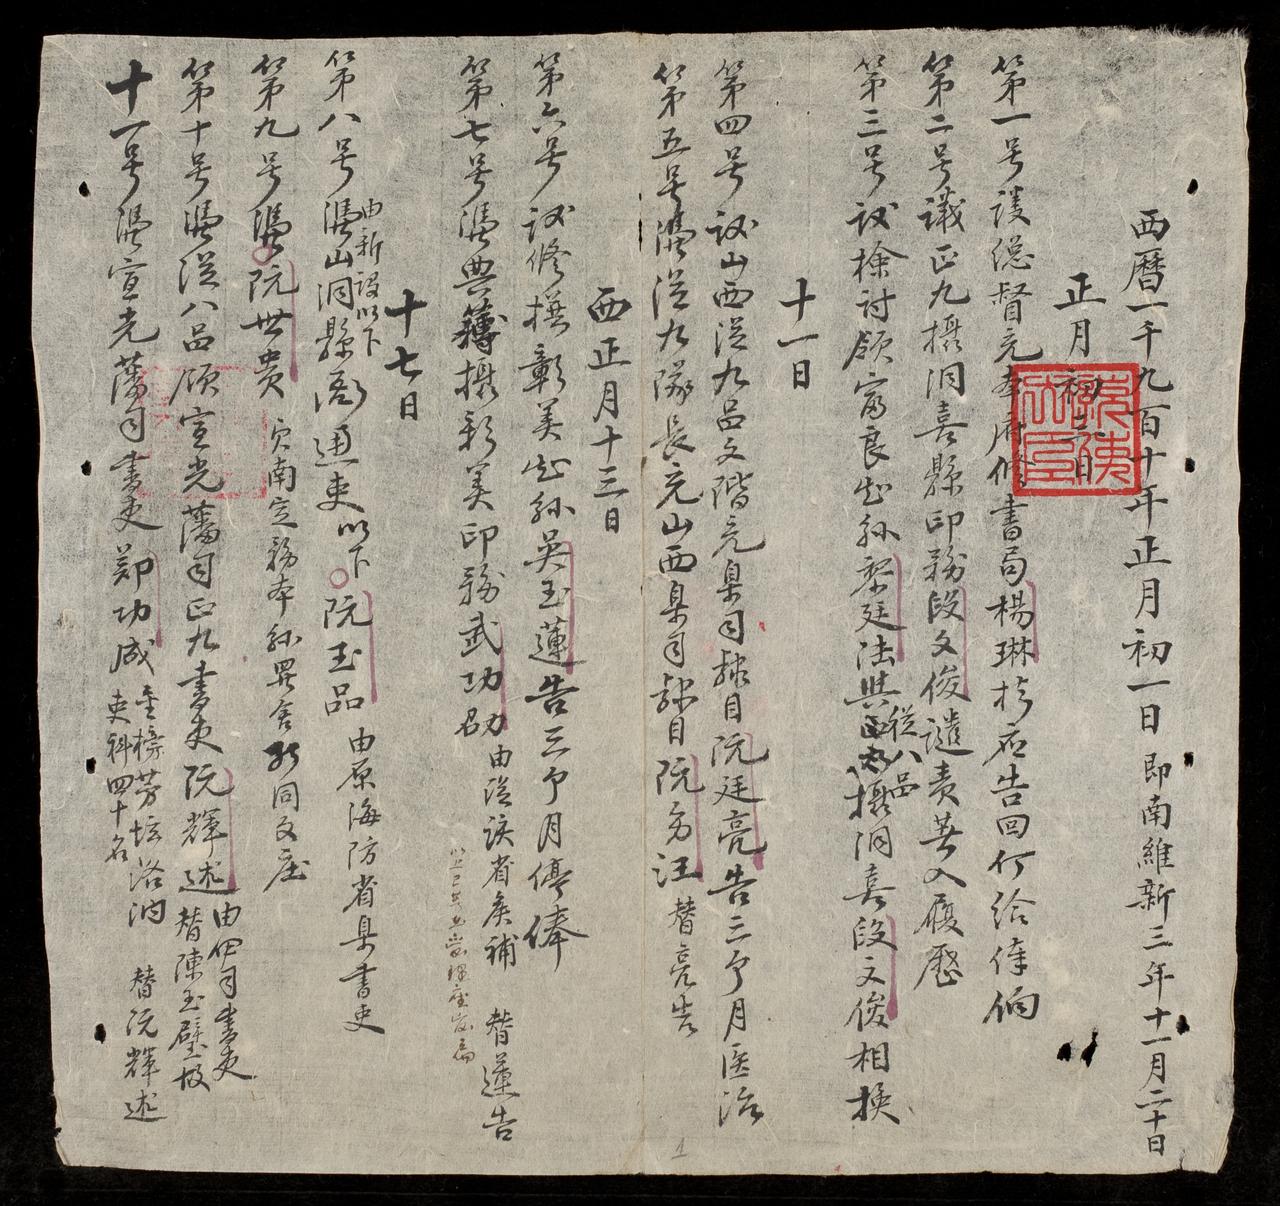 西曆一千九百十年正月初一日即南維新三年十一月二十日
正月初三日
第一号護總督充本府修書局楊琳
告回
第二号議正九攝洞喜縣印務段文俊譴責芸入履歷
第三号議檢討領富良知縣黎廷法與從八品攝洞喜段文俊相換
十一日
第四号議山西從九品文階充臬司隸目阮廷亮告三个月医治
第五号憑從九隊長充山西臬司隸目阮汪替亮告
西正月十三日
第六号議修撰彰美知縣吳玉蓮告三个月停俸
第七号憑典簿攝彰美印務武功劭由從該省候補 替蓮告
十七日
第八号憑山洞縣通吏以下阮玉品由原海防省臬書吏
由新設以下
第九号憑阮世貴
南定務本縣同文
第十号憑從八品領宣光藩司正九書吏阮輝述由仝司書吏替陳玉璧故
十一号憑宣光藩司書吏鄭功成
吏科四十名
替阮輝述